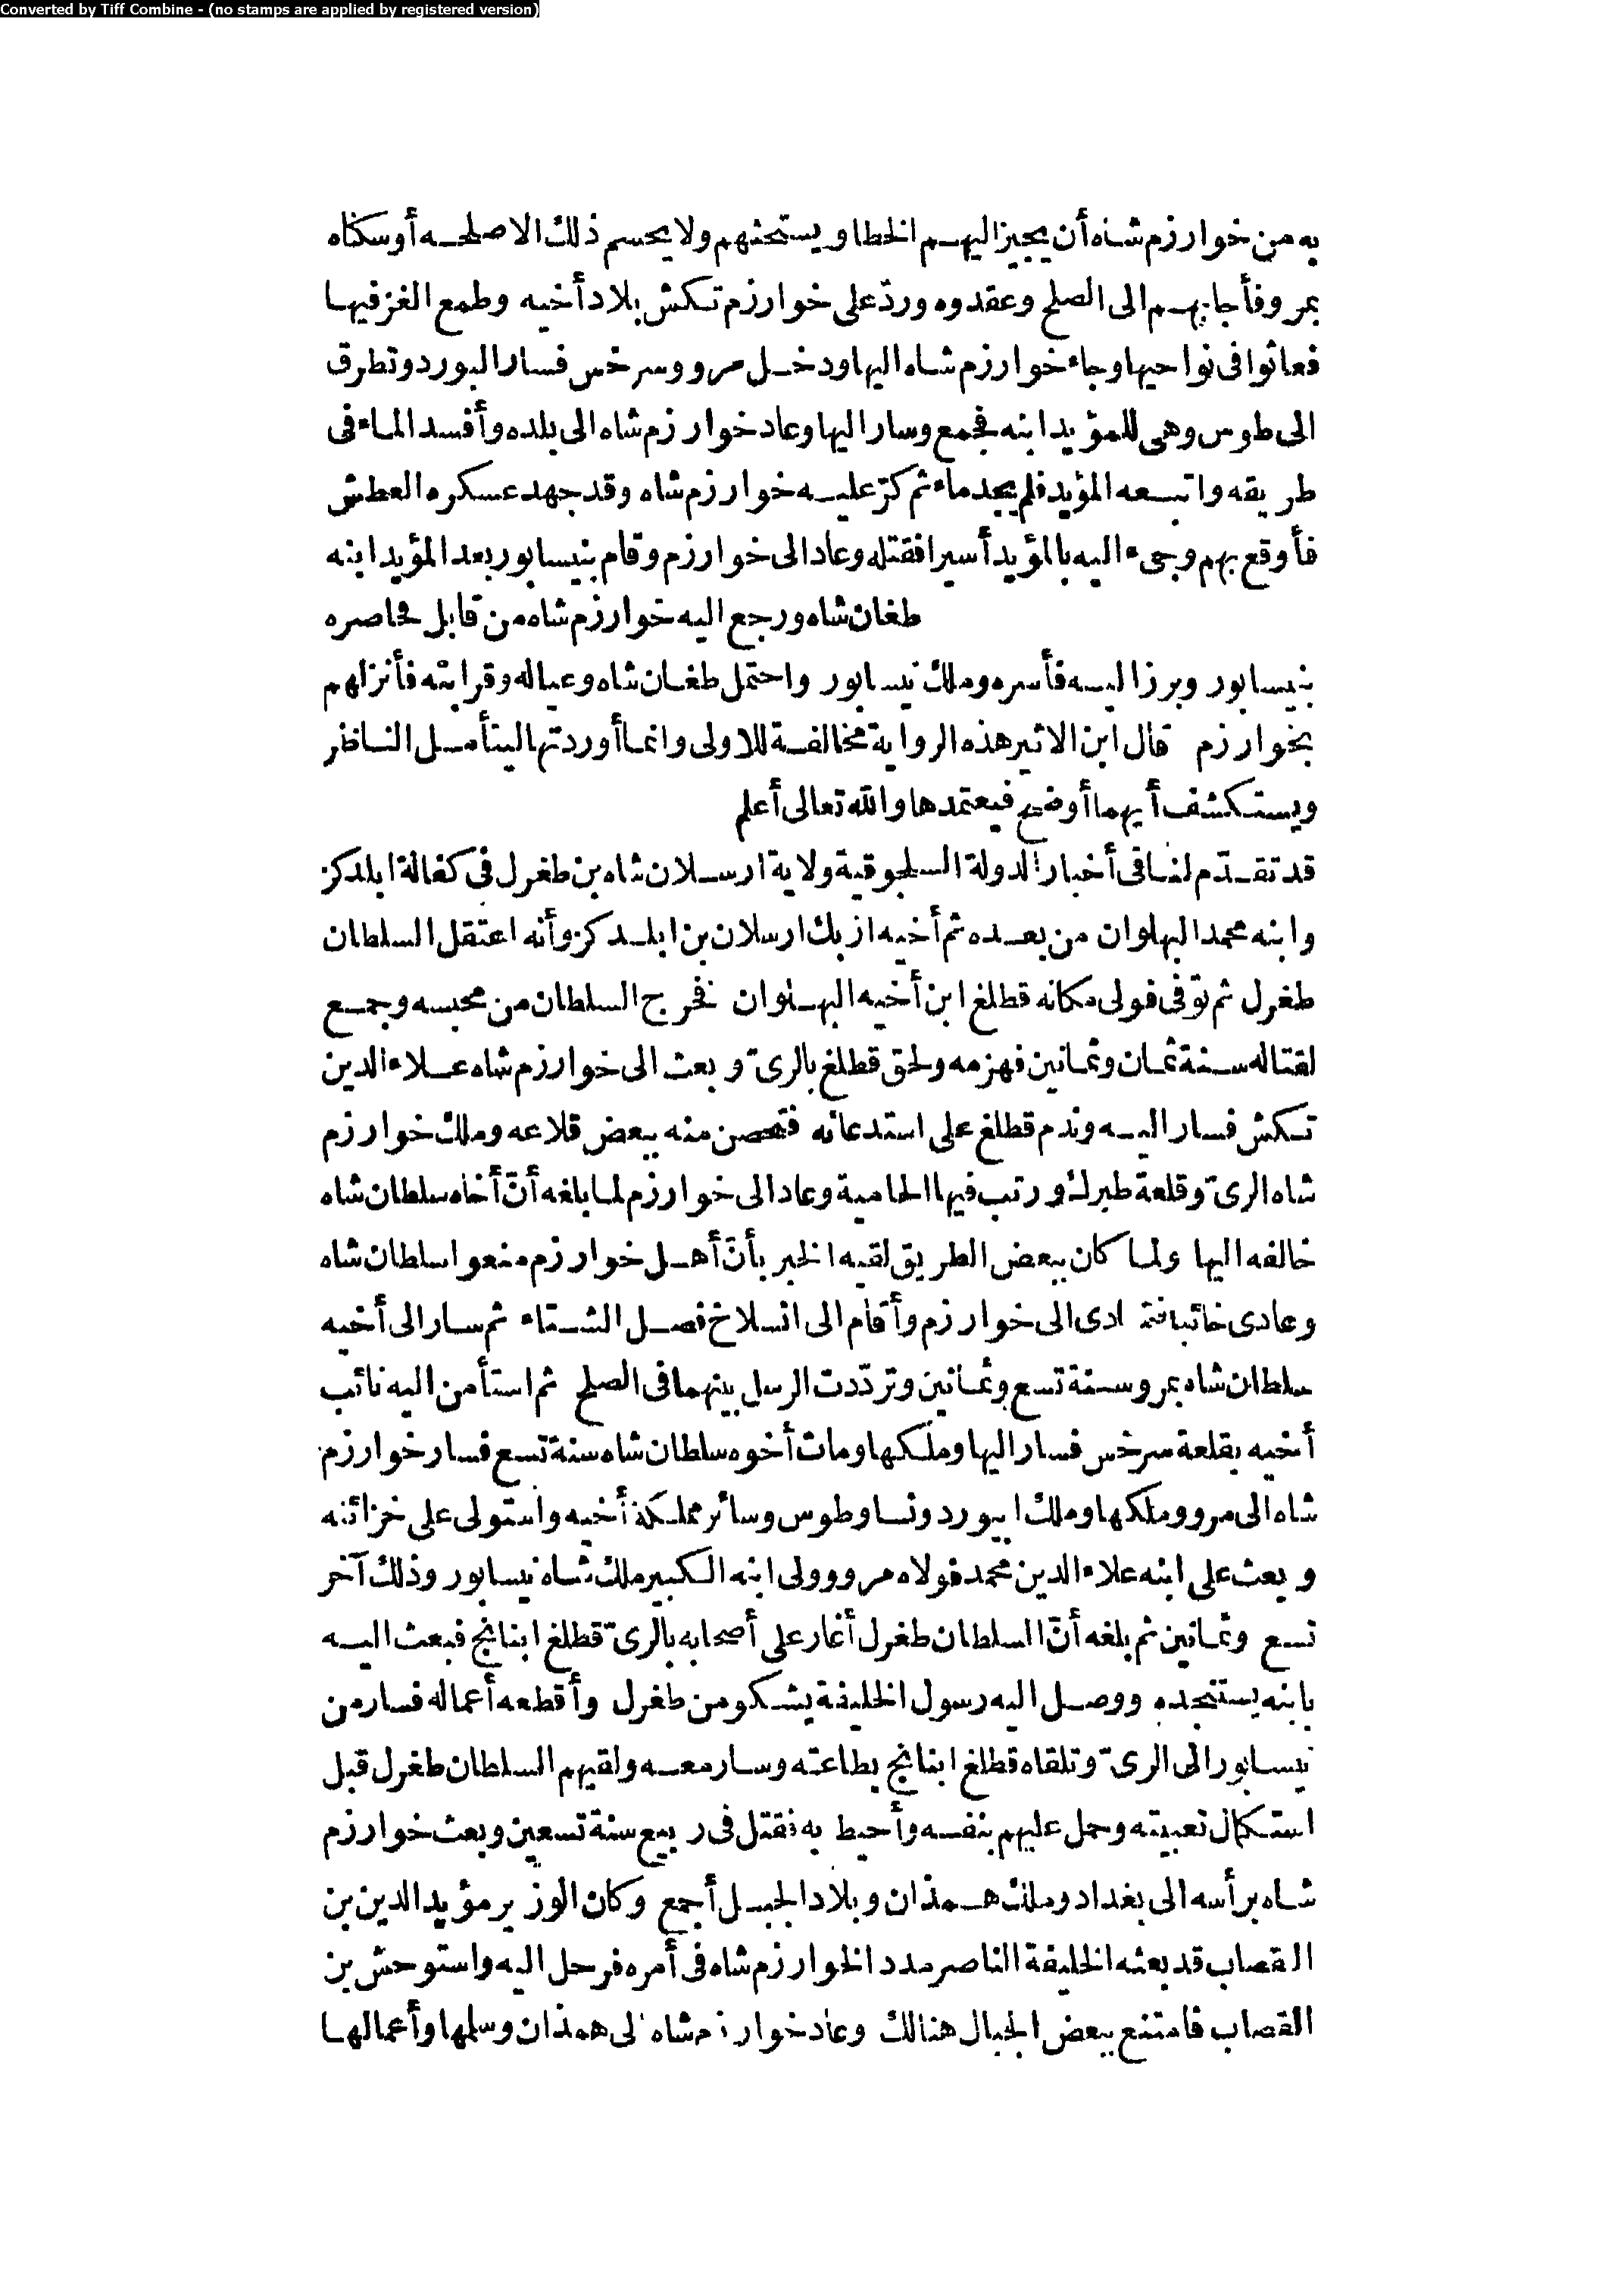 Converted by Tiff Combine - (no stamps are applied by registered version)
به من خوارزم شاه أن يجيز اليهم الخطا ويستحثهم ولا يحسم ذلك الا صلحه أو سكناه
بمرو فأجابهم الى الصلح وعقدوه وردّ على خوارزم تكش بلاد أخيه وطمع الغز فيها
فعاثوا فى نواحيها وجاء خوارزم شاه اليها ودخل مرو وسرخس فسار البورد وتطرق
الى طوس وهى للمؤيد ابنه فجمع وسار اليها وعاد خوارزم شاه الى بلده وأفسد الماء فى
طريقه واتبعه المؤيد فلم يجد ماء ثم كرّ عليه خوارزم شاه وقد جهد عسكره العطش
فأوقع بهم وجىء اليه بالمؤيد أسيرا فقتله وعاد الى خوارزم وقام بنيسابور بعد المؤيد ابنه
طغان شاه ورجع اليه خوارزم شاه من قابل فحاصره
بنيسابور وبرز اليه فأسره وملك نيسابور واحتمل طغان شاه وعياله وقرابته فأنزلهم
بخوارزم قال ابن الاثير هذه الرواية مخالفة للاولى وانما أوردتها ليتأمل الناظر
ويستكشف أيهما أوضح فيعتمدها والله تعالى أعلم
قد تقدّم لنا فى أخبار الدولة السلجوقية ولاية ارسلان شاه بن طغرل فى كفالة ابلدكز
وابنه محمد البهلوان من بعده ثم أخيه ازبك ارسلان بن ابلدكز وأنه اعتقل السلطان
طغرل ثم توّفى فولى مكانه قطلغ ابن أخيه البهلوان فخرج السلطان من محبسه وجمع
لقتاله سنة ثمان وثمانين فهزمه ولحق قطلغ بالرىّ وبعث الى خوارزم شاه علاء الدين
تكش فسار اليه وندم قطلغ على استدعائه فتحصن منه ببعض قلاعه وملك خوارزم
شاه الرىّ وقلعة طبرك ورتب فيها الحامية وعاد الى خوارزم لما بلغه أنّ أخاه سلطان شاه
خالفه اليها ولما كان ببعض الطريق لقيه الخبر بأنّ أهل خوارزم منعوا سلطان شاه
وعادى خائبا فتمادى الى خوارزم وأقام الى انسلاخ فصل الشتاء ثم سار الى أخيه
سلطان شاه بمرو سنة تسع وثمانين وتردّدت الرسل بينهما فى الصلح ثم استأمن اليه نائب
أخيه بقلعة سرخس فسار اليها وملكها ومات أخوه سلطان شاه سنة تسع فسار خوارزم
شاه الى مرو وملكها وملك ابيورد ونسا وطوس وسائر مملكة أخيه واستولى على خزائنه
وبعث على ابنه علاء الدين محمد فولاه مرو وولى ابنه الكبير ملك شاه نيسابور وذلك آخر
تسع وثمانين ثم بلغه أنّ السلطان طغرل أغار على أصحابه بالرىّ قطلغ ابنانج فبعث اليه
بابنه يستنجده ووصل اليه رسول الخليفة يشكو من طغرل وأقطعه أعماله فسار من
نيسابور الى الرىّ وتلقاه قطلغ ابنانج بطاعته وسار معه ولقيهم السلطان طغرل قبل
استكمال تعبيته وحمل عليهم بنفسه وأحيط به فقتل فى ربيع سنة تسعين وبعث خوارزم
شاه برأسه الى بغداد وملك همذان وبلاد الجبل أجمع وكان الوزير مؤيد الدين بن
القصاب قد بعثه الخليفة الناصر مددا لخوارزم شاه فى أمره فرحل اليه واستوحش بن
القصاب فامتنع ببعض الجبال هنالك وعاد خوارزم شاه الى همذان وسلمها وأعمالها